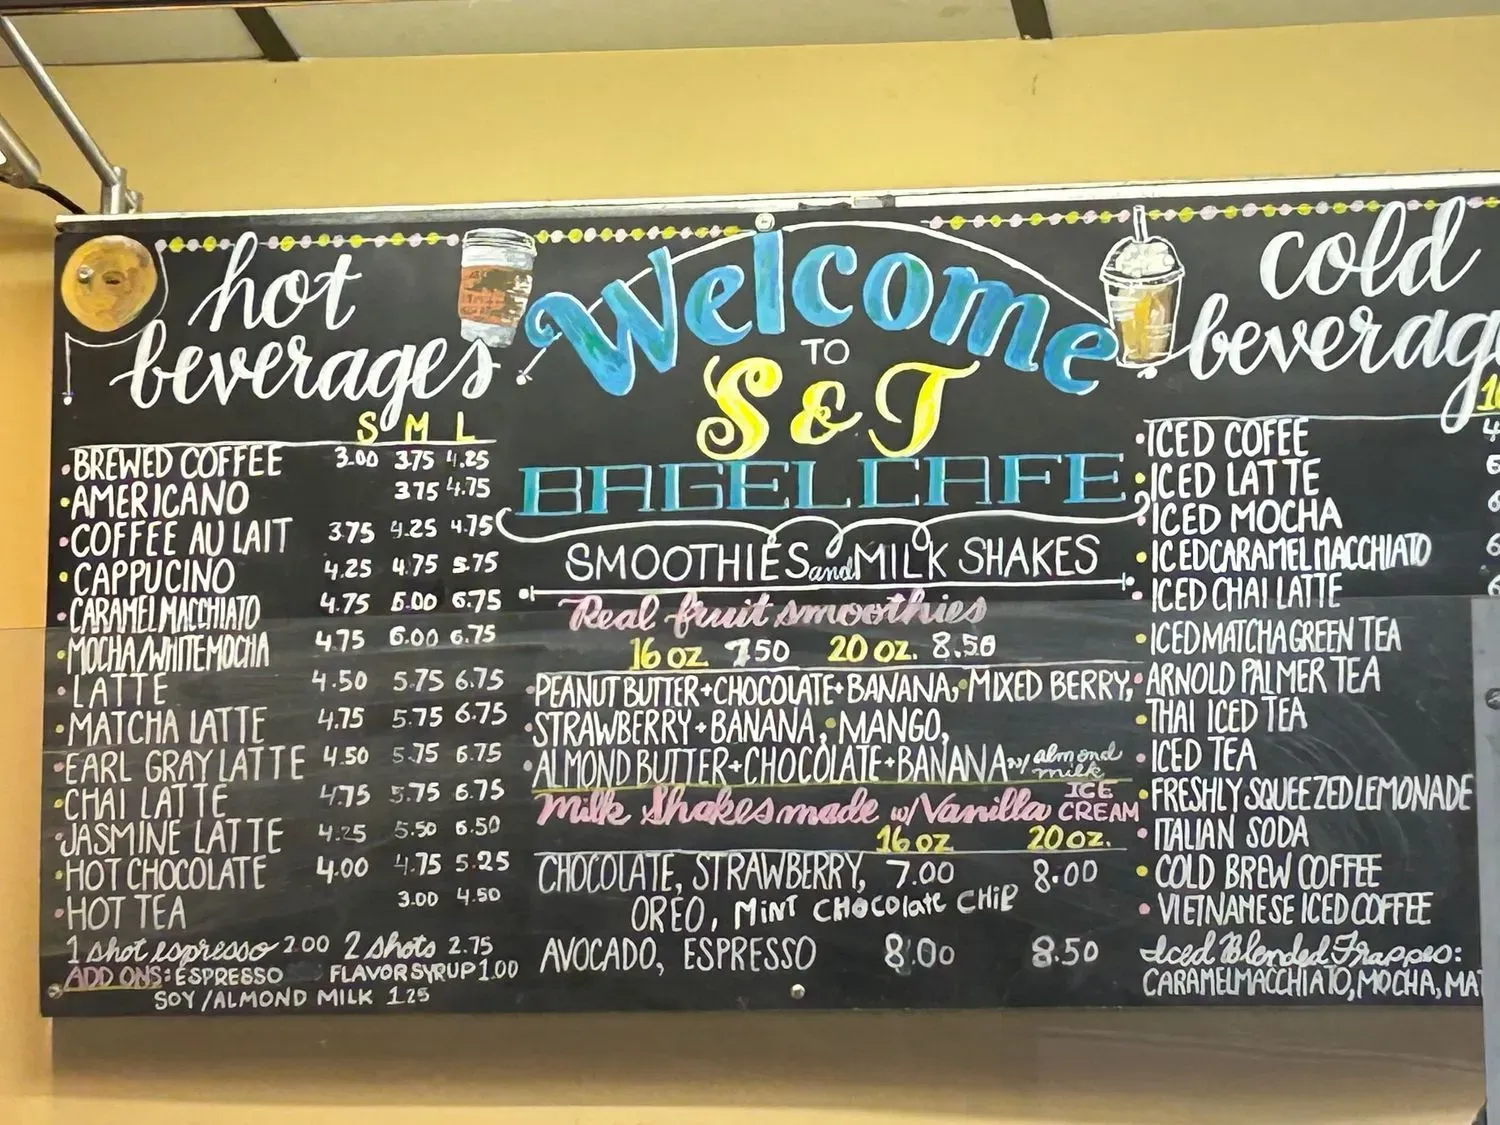 hot
beverages
S M L
BREWED COFFEE 3.00 3.75 4.25
AMERICANO 3.75 4.75
COFFEE AU LAIT 3.75 4.25 4.75
CAPPUCINO 4.25 4.75 5.75
CARAMEL MACCHIATO 4.75 6.00 6.75
MOCHA/WHITE MOCHA 4.75 6.00 6.75
LATTE 4.50 5.75 6.75
MATCHA LATTE 4.75 5.75 6.75
EARL GRAY LATTE 4.50 5.75 6.75
CHAI LATTE 4.75 5.75 6.75
JASMINE LATTE 4.25 5.50 6.50
HOT CHOCOLATE 4.00 4.75 5.25
HOT TEA 3.00 4.50
1 shot espresso 2.00 2 shots 2.75
ADD ONS: ESPRESSO FLAVOR SYRUP 1.00
SOY/ALMOND MILK 1.25
Welcome
TO
S & T
BAGEL CAFE
SMOOTHIES and MILK SHAKES
Real fruit smoothies
16 oz 7.50 20 oz. 8.50
PEANUT BUTTER+CHOCOLATE+BANANA, MIXED BERRY,
STRAWBERRY+BANANA, MANGO,
ALMOND BUTTER+CHOCOLATE+BANANA w/ almond milk
Milk Shakes made w/ Vanilla ICE CREAM
16 oz 20 oz.
CHOCOLATE, STRAWBERRY, 7.00 8.00
OREO, MINT CHOCOLATE CHIP
AVOCADO, ESPRESSO 8.00 8.50
cold
beverag
ICED COFEE
ICED LATTE
ICED MOCHA
ICED CARAMEL MACCHIATO
ICED CHAI LATTE
ICED MATCHA GREEN TEA
ARNOLD PALMER TEA
THAI ICED TEA
ICED TEA
FRESHLY SQUEEZED LEMONADE
ITALIAN SODA
COLD BREW COFFEE
VIETNAMESE ICED COFFEE
Iced Blended Frappes:
CARAMEL MACCHIATO, MOCHA, MAT